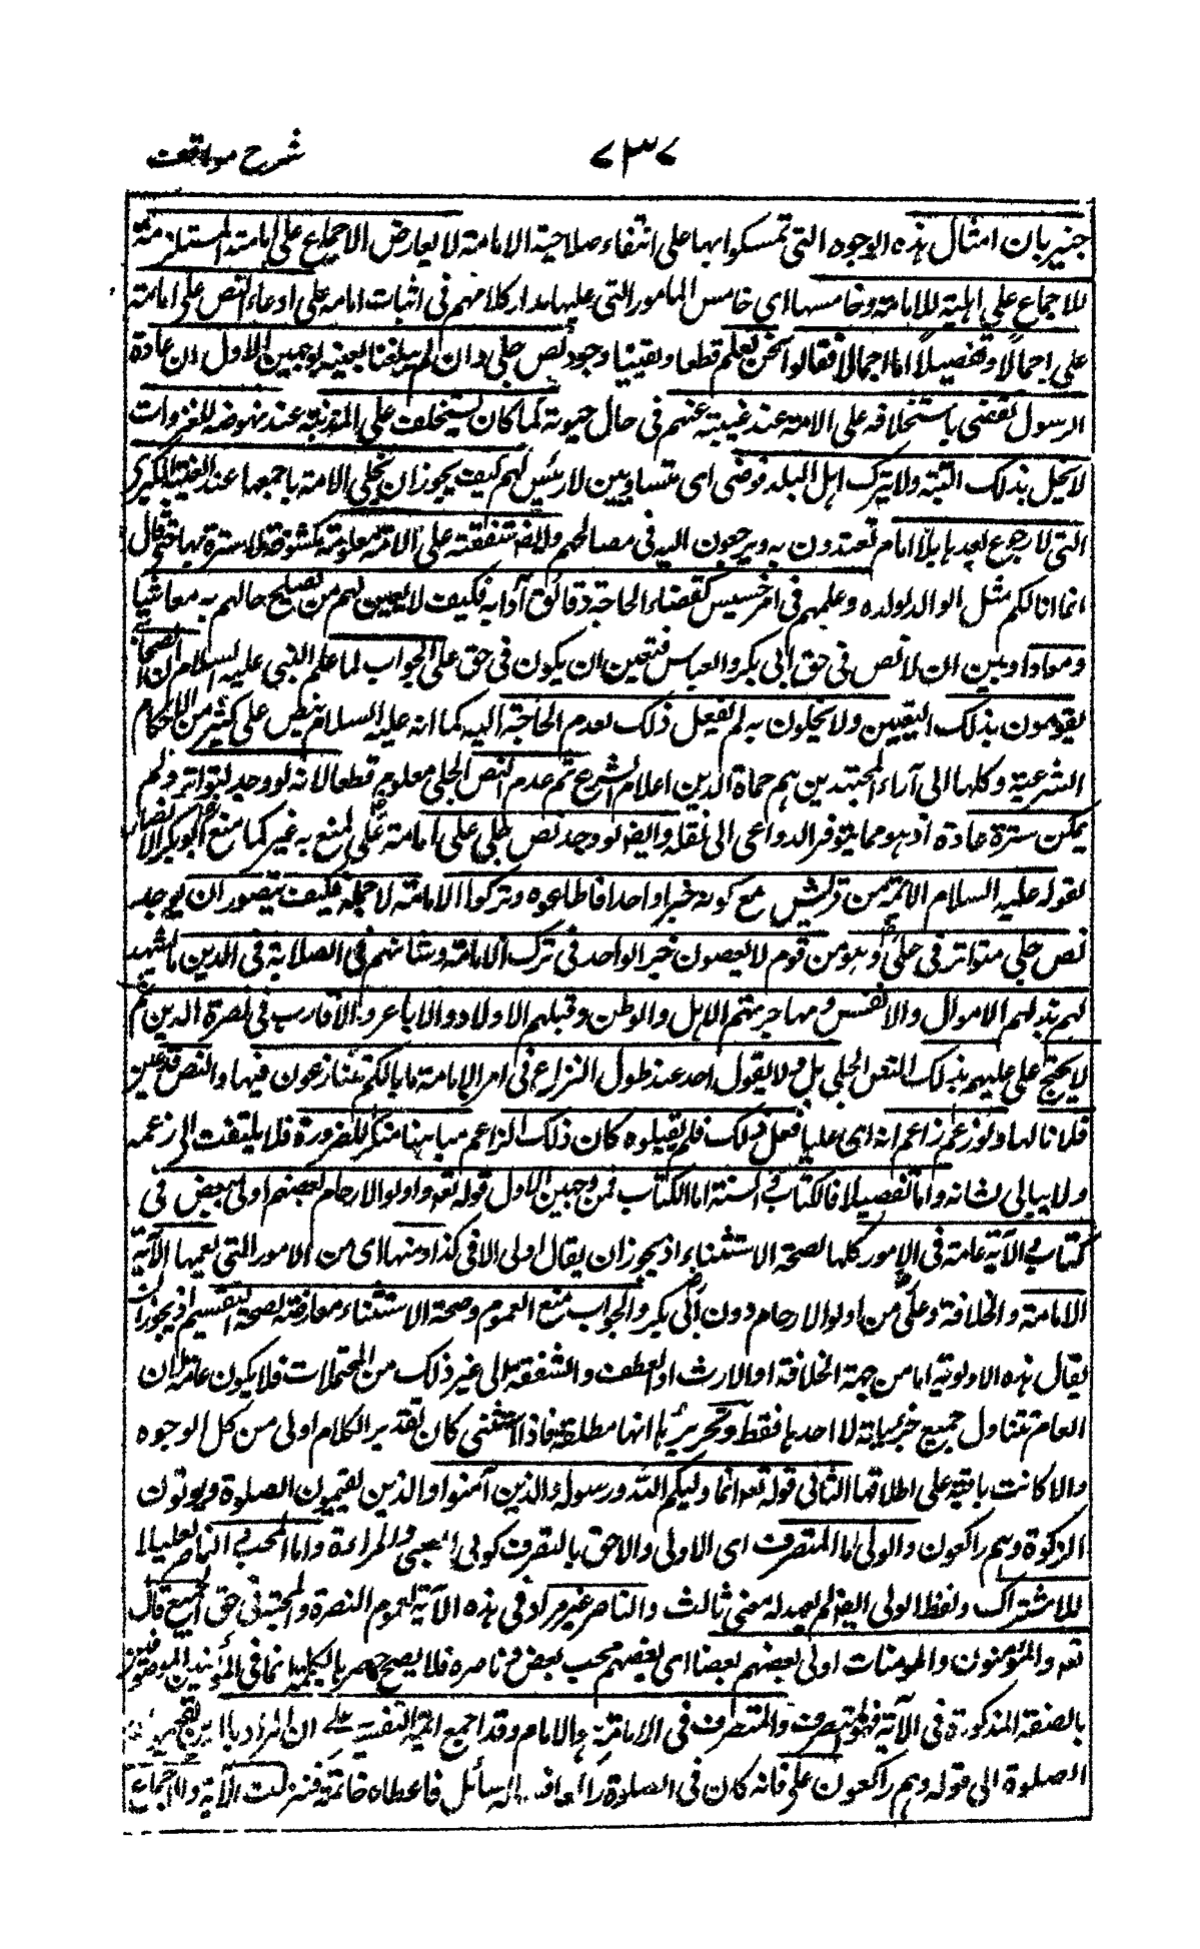 شرح مواقف
٧٣٧
خبير بان امثال هذه الوجوه التى تمسكوا بها على انتفاء صلاحية الامامة لا يعارض الاجماع على امامته المستلزمة
للاجماع على اهلية للامامة وخامسها اى خامس الامور التى عليها مدار كلامهم فى اثبات امامه على ادعاء النص على امامة
على اجمالا وتفصيلا اما اجمالا فقالوا نحن نعلم قطعا ويقينا وجود نص جلى وان لم يبلغنا بعينه لوجهين الاول ان عادة
الرسول تقضى باستخلافه على الامة عند غيبته عنهم فى حال حيوته كما كان يستخلف على المدينة عند نهوضه للغزوات
لا يخل بذلك البتة ولا يترك اهل البلد فوضى اى متساويين لا رئيس لهم كيف يجوز ان يخلى الامة باجمعها عند الغيبة الكبرى
التى لا رجوع بعدها بلا امام يقتدون به ويرجعون اليه فى مصالحهم وايضا شفقته على الامة معلومة مكشوفة لا سترة بها حتى قال
انما انا لكم مثل الوالد لولده وعلمهم فى امر خسيس كقضاء الحاجة دقائق آدابه فكيف لا يعين لهم من يصلح حالهم به معاشا
ومعادا وبين ان لا نص فى حق ابى بكر والعباس فتعين ان يكون فى حق على الجواب لما علم النبى عليه السلام ان الصحابة
يقومون بذلك التعيين ولا يخلون به لم يفعل ذلك لعدم الحاجة اليه كما انه عليه السلام لم ينص على كثير من الاحكام
الشرعية وكلها الى آراء المجتهدين هم حماة الدين اعلام الشرع ثم عدم النص الجلى معلوم قطعا لانه لو وجد لتواتر ولم
يمكن سترة عادة اذ هو مما يتوفر الدواعى الى نقله وايضا لو وجد نص جلى على امامة على لمنع به غير كما منع ابو بكر الانصار
بقوله عليه السلام الائمة من قريش مع كونه خبرا واحدا فاطاعوه وتركوا الامامة لاجله فكيف يتصور ان يوجد
نص جلى متواتر فى حق على وهو من قوم لا يعصون خبر الواحد فى ترك الامامة وشانهم فى الصلابة فى الدين ما يشهد
لهم بذلهم الاموال والانفس ومهاجرتهم الاهل والوطن وقتلهم الاولاد والاباء والاقارب فى نصرة الدين ثم
لا يحتج على عليهم بذلك النص الجلى بل ولا يقول احد عند طول النزاع فى امر الامامة ما بالكم تنازعون فيها والنص قد عين
فلانا لها ولو زعم زاعم انه اى عليا فعل ذلك فلم يقبلوه كان ذلك الزاعم مباهتا منكرا للضرورة فلا يلتفت الى زعمه
ولا يبالى بشانه واما تفصيلا فالكتاب والسنة اما الكتاب فمن وجهين الاول قوله تعه واولوا الارحام بعضهم اولى ببعض فى
كتاب الآية عامة فى الامور كلها لصحة الاستثناء اذ يجوز ان يقال اولى الا فى كذا ومنها اى من الامور التى يعمها الآية
الامامة والخلافة وعلى من اولو الارحام دون ابى بكر والجواب منع العموم وصحة الاستثناء معارضة لصحة التقسيم اذ يجوز ان
يقال هذه الاولوية اما من جهة الخلافة او الارث او العطف والشفقة الى غير ذلك من المحتملات فلا يكون عامة لان
العام يتناول جميع جزئياته لا احدها فقط وتحريره انها مطلقة فاذا استثنى كان تقدير الكلام اولى من كل الوجوه
والا كانت باقية على اطلاقها الثانى قوله تعه انما وليكم الله ورسوله والذين آمنوا والذين يقيمون الصلوة ويوتون
الزكوة وهم راكعون والولى اما المتصرف اى الاولى والاحق بالتصرف كولى الصبى والمراءة واما المحب الناصر تقليلا
للاشتراك ولفظ الولى ايضا لم يعهد له معنى ثالث والناصر غير مراد فى هذه الآية لعموم النصرة والمحبة فى حق الجميع قال
تعه والمؤمنون والمومنات اولى بعضهم بعضا اى بعضهم محب بعض وناصره فلا يصح حصر بالكلمة انما فى المؤمنين الموصوفين
بالصفة المذكورة فى الآية فهو المتصرف والمتصرف فى الامة هو الامام وقد اجمع ائمة التفسير على ان المراد بالذين يقيمون
الصلوة الى قوله وهم راكعون على فانه كان فى الصلوة راكعا السائل فاعطاه خاتمة فنزلت الآية والاجماع